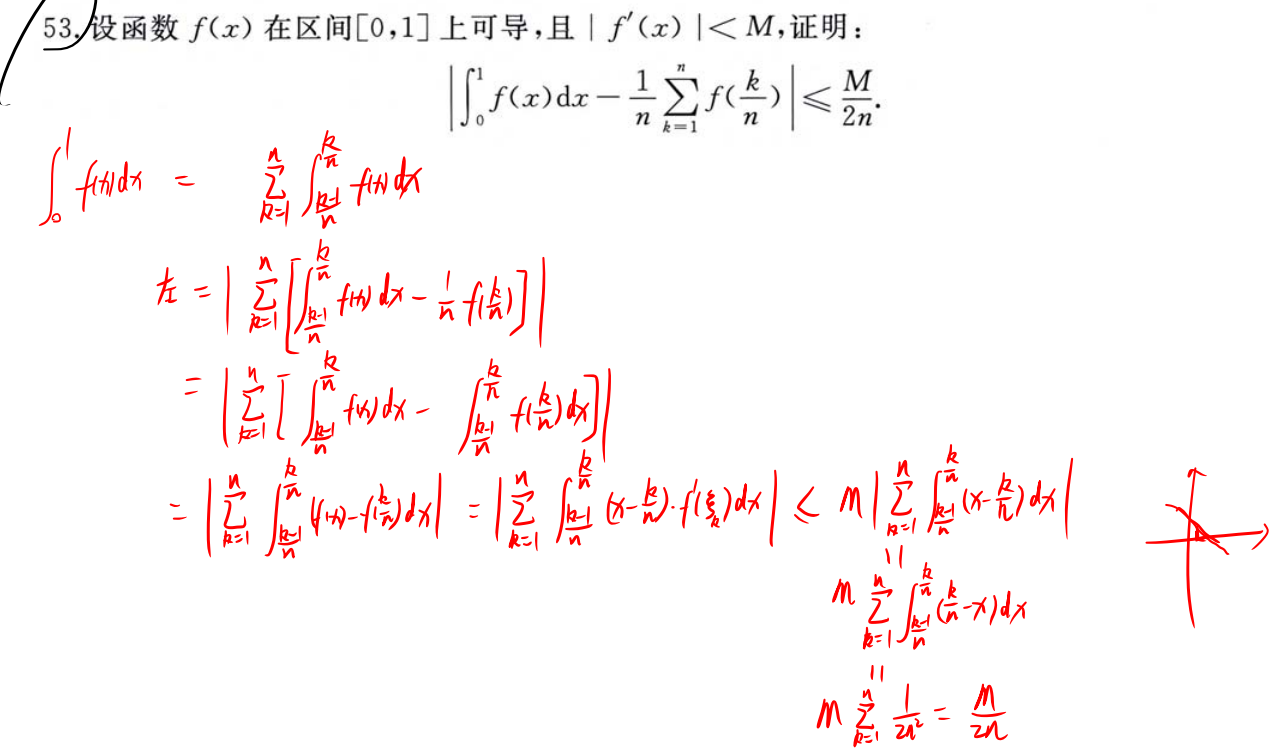 53. 设函数 f(x) 在区间[0,1]上可导,且 | f′(x) |< M,证明:
|∫₀¹ f(x)dx − 1/n ∑_{k=1}^{n} f(k/n)| ⩽ M/2n.
∫₀¹ f(x)dx = ∑_{k=1}^{n} ∫_{(k-1)/n}^{k/n} f(x)dx
左 = |∑_{k=1}^{n} [∫_{(k-1)/n}^{k/n} f(x)dx − 1/n f(k/n)]|
= |∑_{k=1}^{n} [∫_{(k-1)/n}^{k/n} f(x)dx − ∫_{(k-1)/n}^{k/n} f(k/n)dx]|
= |∑_{k=1}^{n} ∫_{(k-1)/n}^{k/n} (f(x)−f(k/n)dx| = |∑_{k=1}^{n} ∫_{(k-1)/n}^{k/n} (x−k/n)·f′(ξ_k)dx| ≤ M|∑_{k=1}^{n} ∫_{(k-1)/n}^{k/n} (x−k/n)dx|
=
M ∑_{k=1}^{n} ∫_{(k-1)/n}^{k/n} (k/n−x)dx
=
M ∑_{k=1}^{n} 1/2n² = M/2n